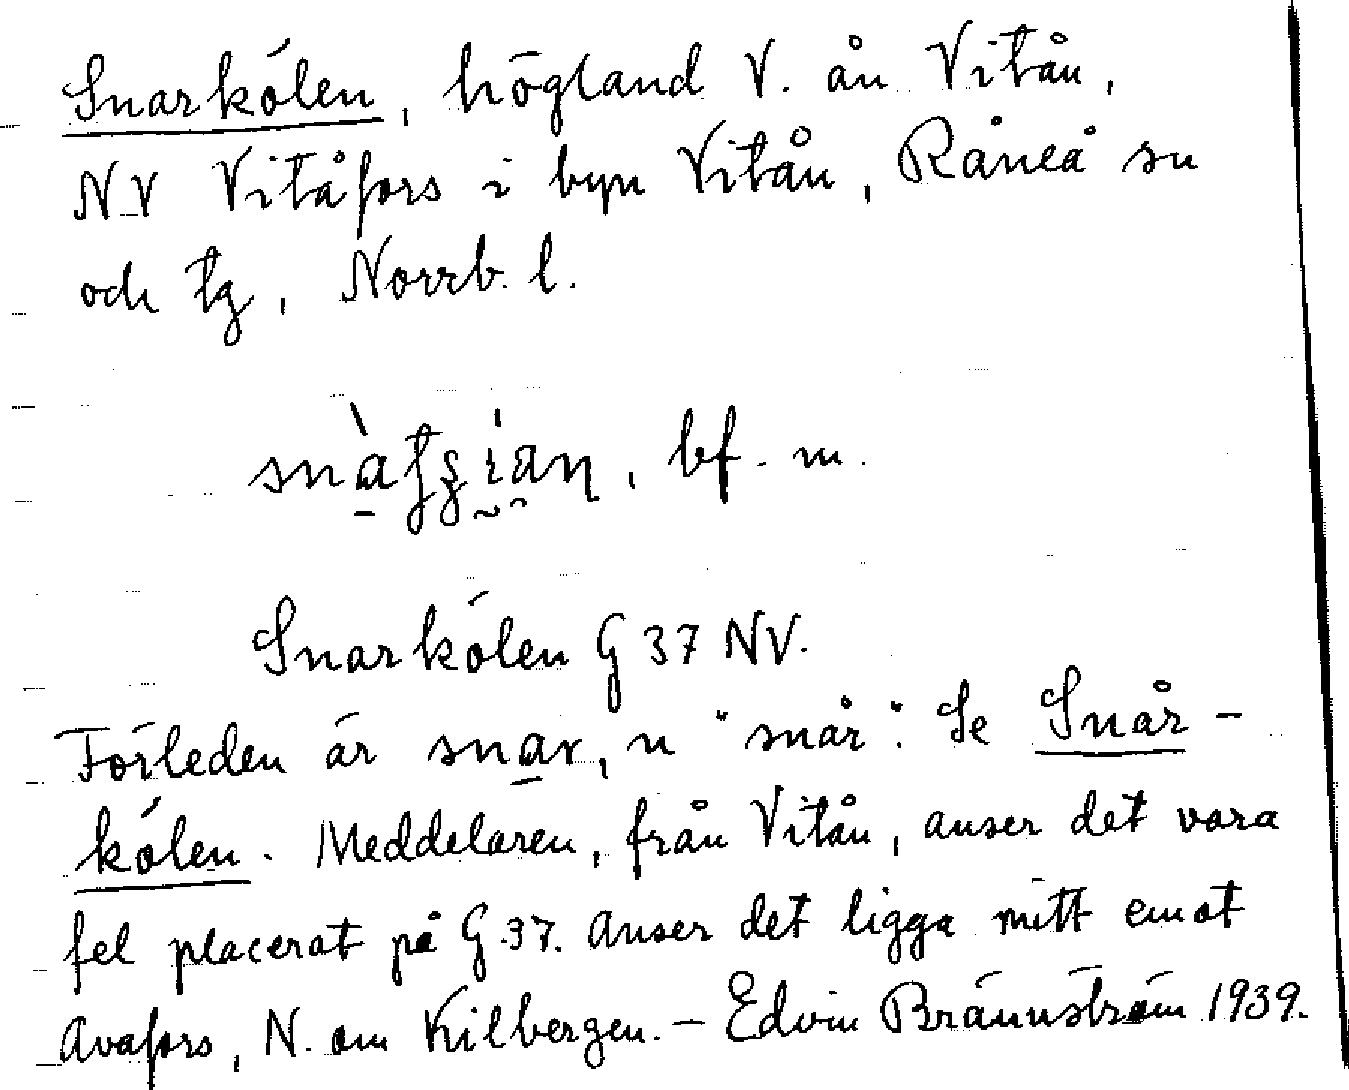 Snarkölen, högland V. ån Vitån,
N.V Vitåfors i byn Vitån, Råneå sn
och tg, Norrb. l.
bf. m.
Snarkölen G 37 NV.
Förleden är snar, n "snår". Se Snår-
kölen. Meddelaren, från Vitån, anser det vara
fel placerat på G.37. Anser det ligga mitt emot
Avafors, N. om Kilbergen. – Edvin Brännström 1939.